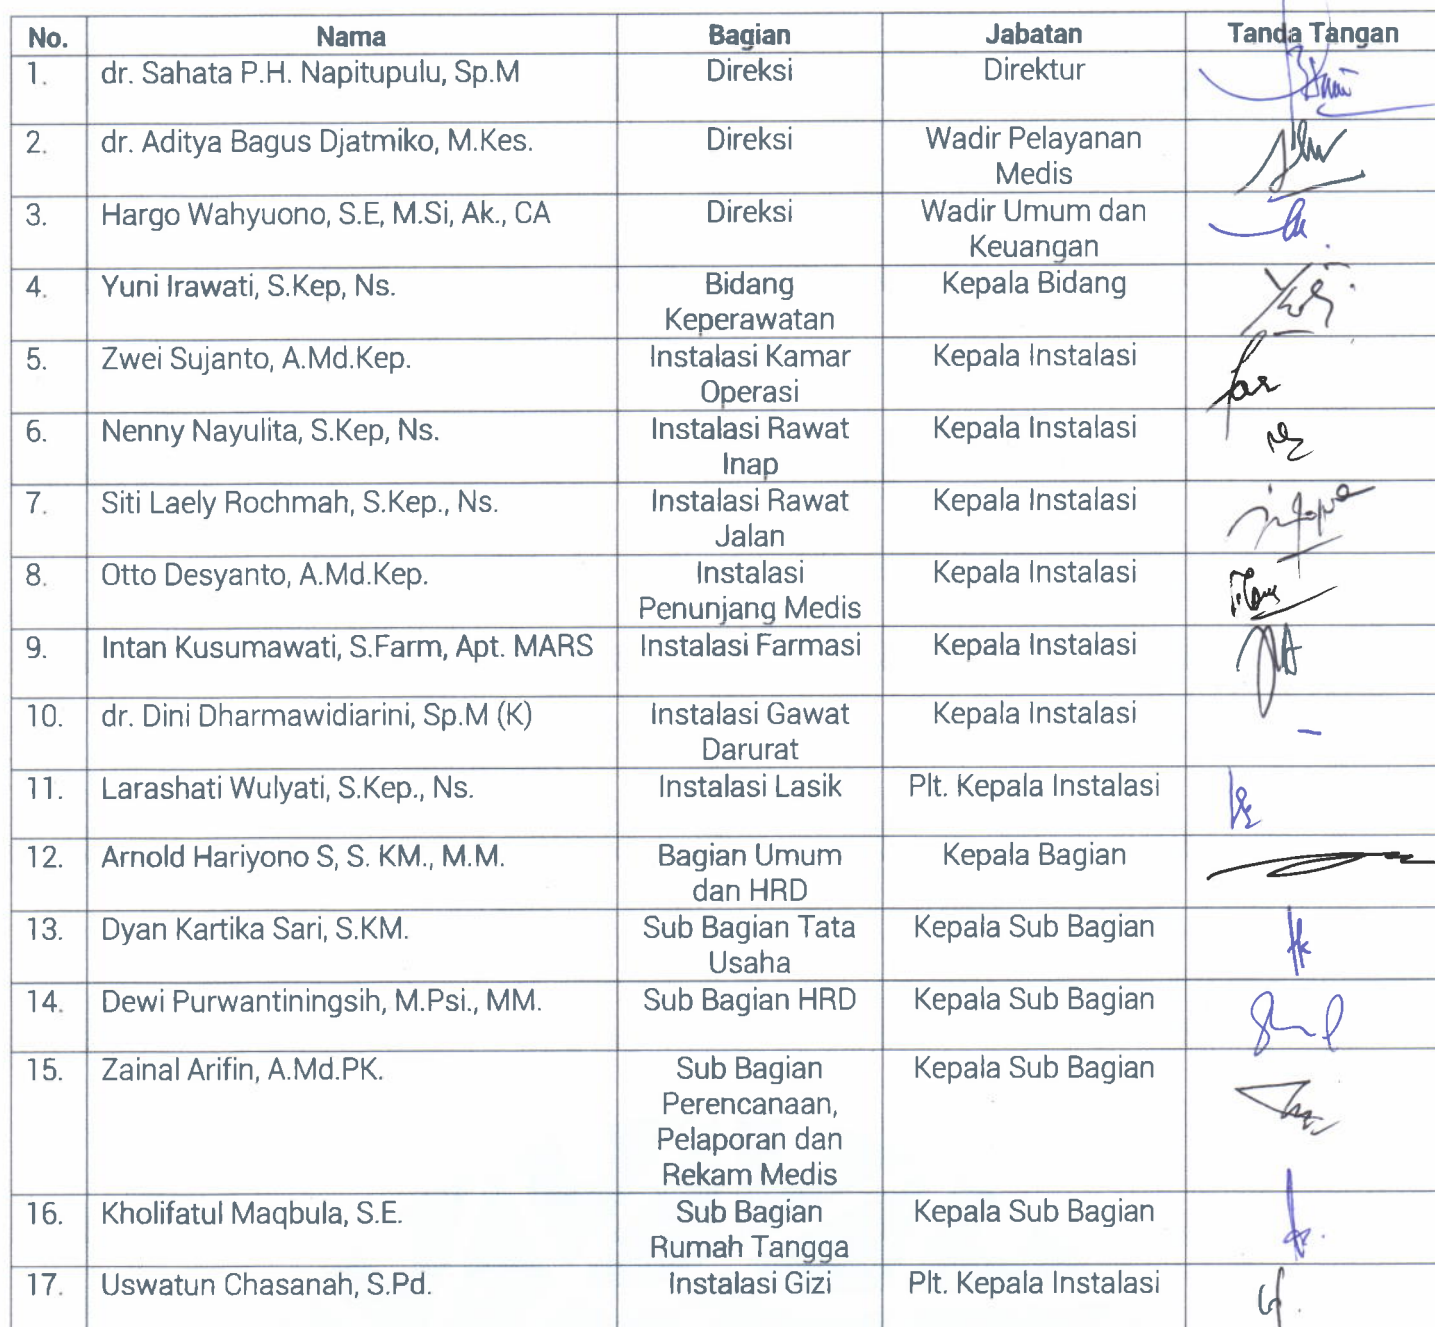 No. Nama Bagian Jabatan Tanda Tangan
1. dr. Sahata P.H. Napitupulu, Sp.M Direksi Direktur
2. dr. Aditya Bagus Djatmiko, M.Kes. Direksi Wadir Pelayanan
Medis
3. Hargo Wahyuono, S.E, M.Si, Ak., CA Direksi Wadir Umum dan
Keuangan
4. Yuni Irawati, S.Kep, Ns. Bidang Kepala Bidang
Keperawatan
5. Zwei Sujanto, A.Md.Kep. Instalasi Kamar Kepala Instalasi
Operasi
6. Nenny Nayulita, S.Kep, Ns. Instalasi Rawat Kepala Instalasi
Inap
7. Siti Laely Rochmah, S.Kep., Ns. Instalasi Rawat Kepala Instalasi
Jalan
8. Otto Desyanto, A.Md.Kep. Instalasi Kepala Instalasi
Penunjang Medis
9. Intan Kusumawati, S.Farm, Apt. MARS Instalasi Farmasi Kepala Instalasi
10. dr. Dini Dharmawidiarini, Sp.M (K) Instalasi Gawat Kepala Instalasi
Darurat
11. Larashati Wulyati, S.Kep., Ns. Instalasi Lasik Plt. Kepala Instalasi
12. Arnold Hariyono S, S. KM., M.M. Bagian Umum Kepala Bagian
dan HRD
13. Dyan Kartika Sari, S.KM. Sub Bagian Tata Kepala Sub Bagian
Usaha
14. Dewi Purwantiningsih, M.Psi., MM. Sub Bagian HRD Kepala Sub Bagian
15. Zainal Arifin, A.Md.PK. Sub Bagian Kepala Sub Bagian
Perencanaan,
Pelaporan dan
Rekam Medis
16. Kholifatul Maqbula, S.E. Sub Bagian Kepala Sub Bagian
Rumah Tangga
17. Uswatun Chasanah, S.Pd. Instalasi Gizi Plt. Kepala Instalasi